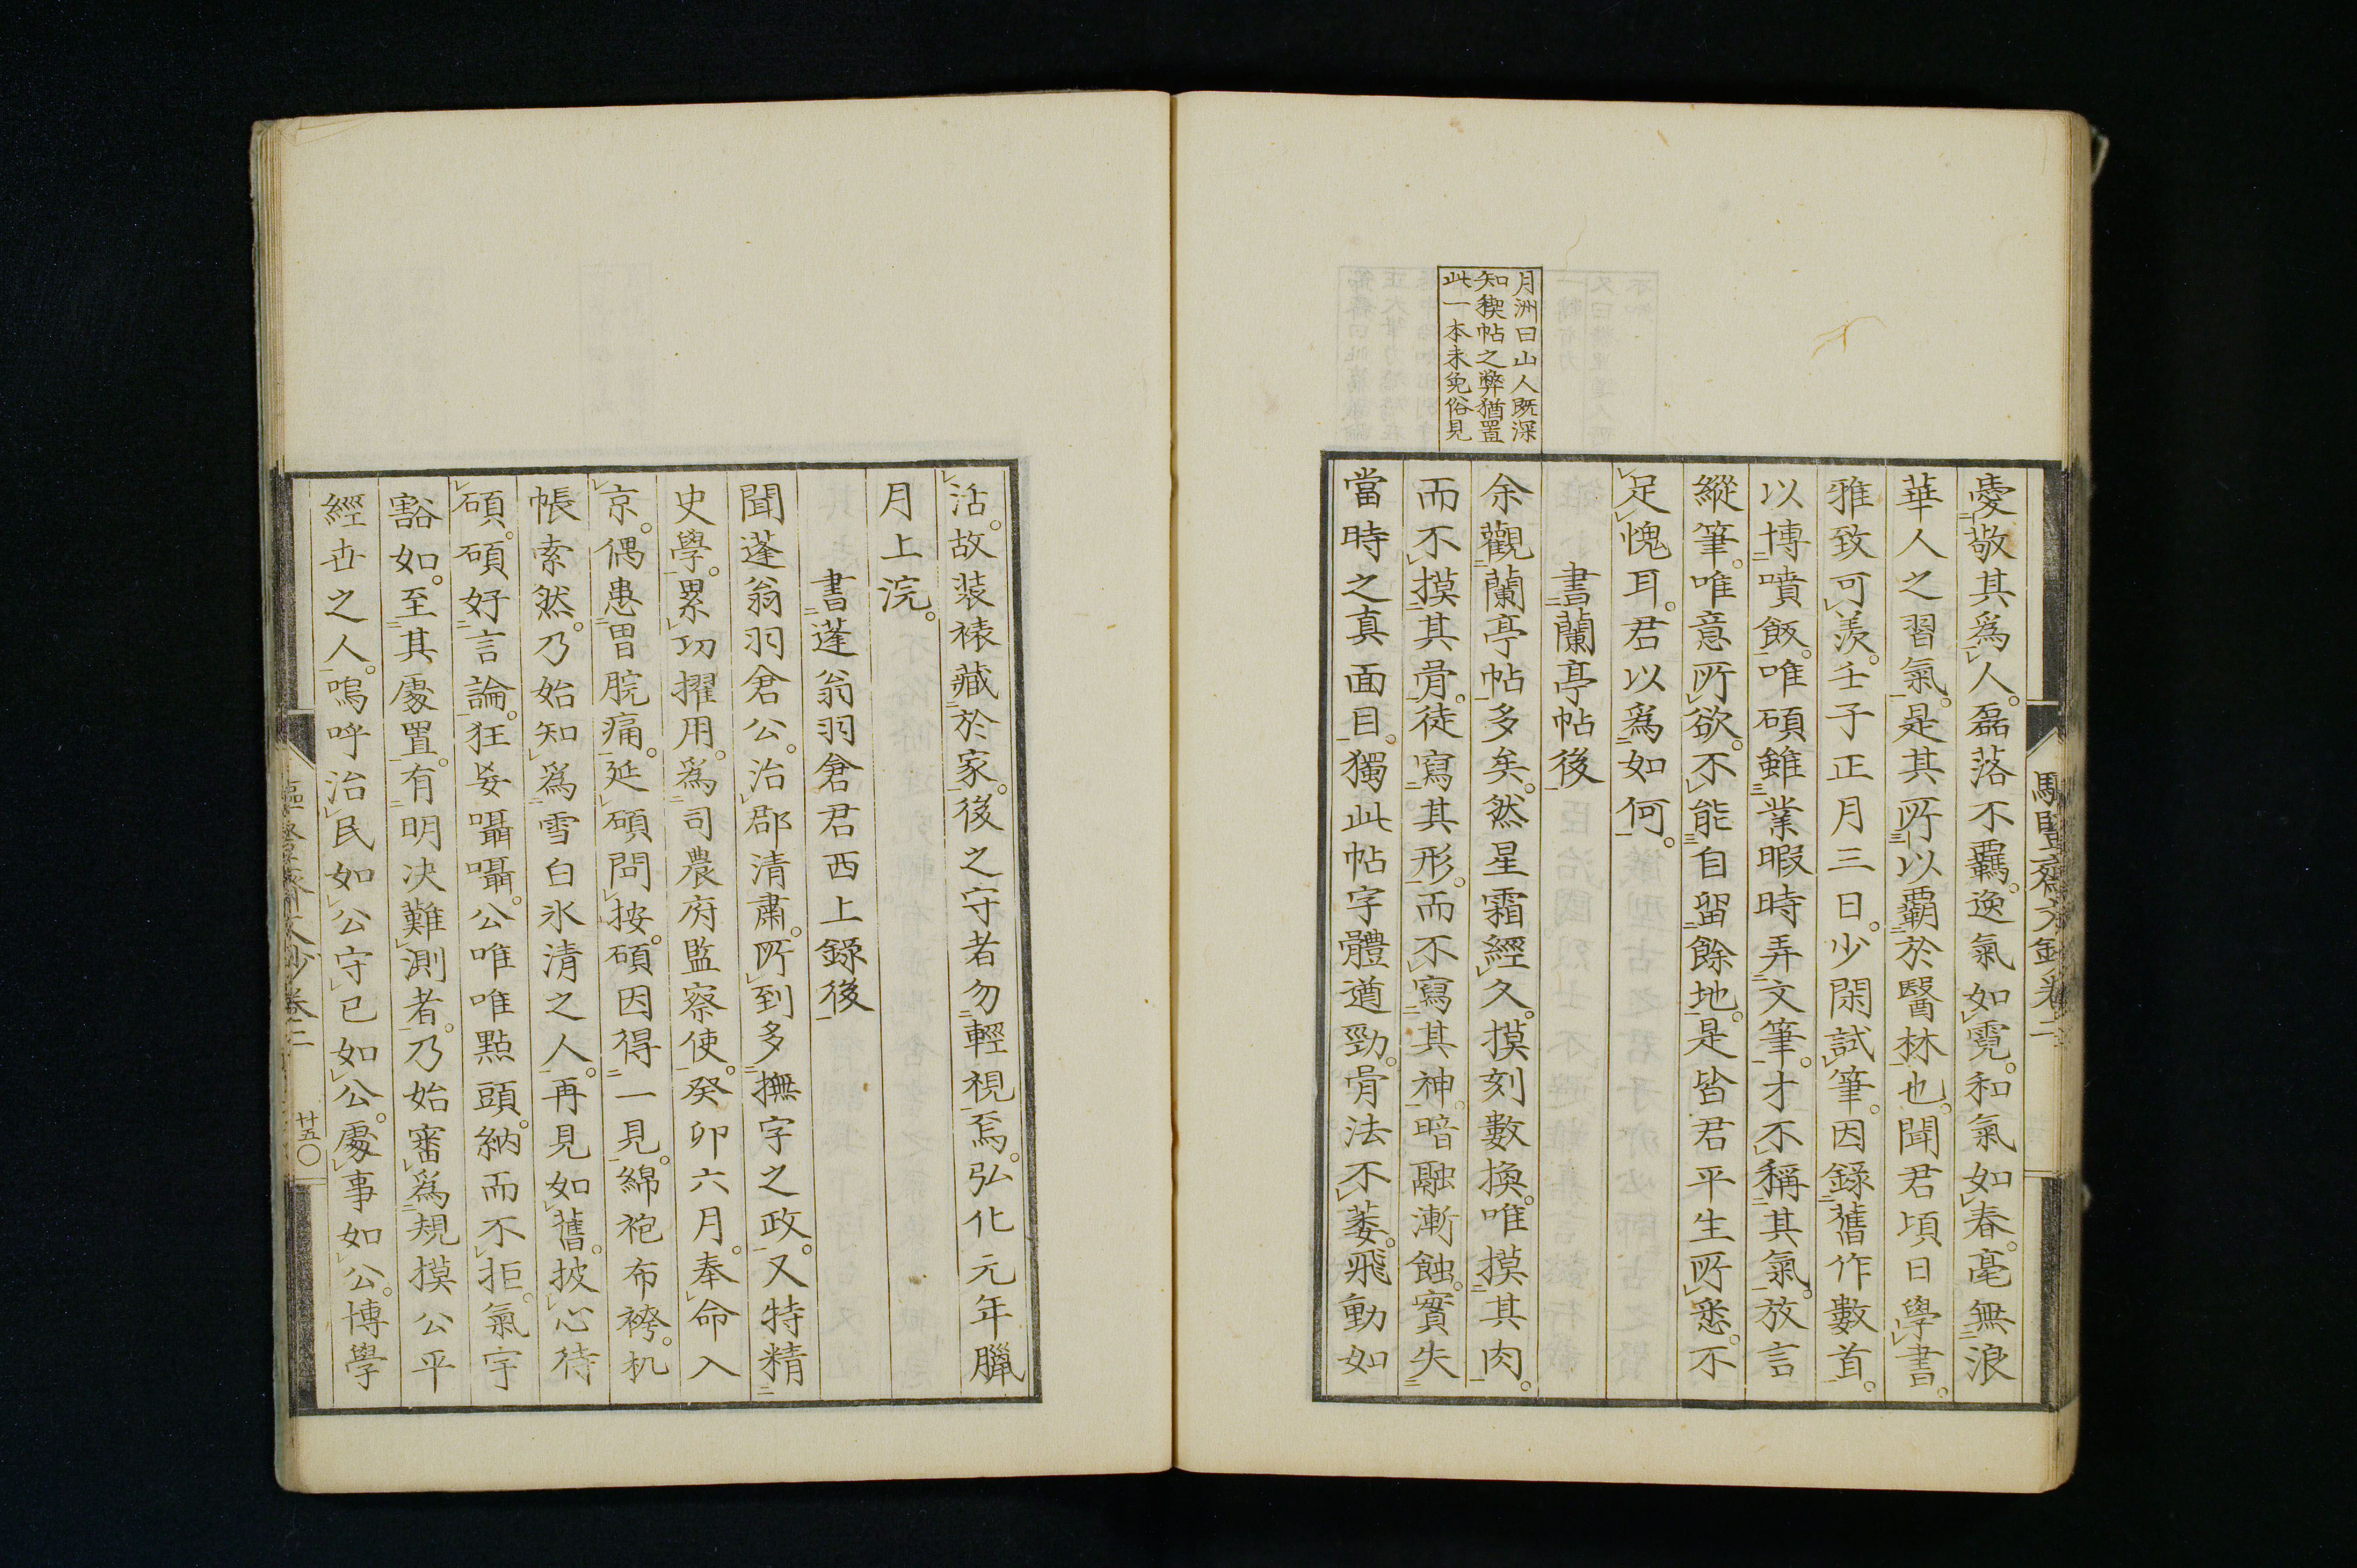 月洲曰山人既深
知稧帖之弊猶置
此一本未免俗見
憂敬其爲人。磊落不羈。逸氣如霓。和氣如春。毫無浪
華人之習氣。是其所以覇於醫林也。聞君頃日學書。
雅致可羨。壬子正月三日。少閑試筆。因錄舊作數首。
以博噴飯。唯碩雖業暇時弄文筆。才不稱其氣。放言
縱筆。唯意所欲。不能自留餘地。是皆君平生所悉。不
足愧耳。君以爲如何。
書蘭亭帖後
余觀蘭亭帖多矣。然星霜經久。摸刻數換。唯摸其肉。
而不摸其骨。徒寫其形。而不寫其神。暗融漸蝕。實失
當時之真面目。獨此帖字體遒勁。骨法不萎。飛動如
活。故裝裱藏於家。後之守者勿輕視焉。弘化元年臘
月上浣。
書蓬翁羽倉君西上錄後
聞蓬翁羽倉公。治郡清肅。所到多撫字之政。又特精
史學。累功擢用。爲司農府監察使。癸卯六月。奉命入
京。偶患胃脘痛。延碩問按。碩因得一見。綿袍布袴。机
帳索然。乃始知爲雪白氷清之人。再見如舊。披心待
碩。碩好言論。狂妄囁囁。公唯唯點頭。納而不拒。氣宇
豁如。至其處置。有明决難測者。乃始審爲規摸公平
經世之人。嗚呼治民如公。守已如公。處事如公。博學
廿五